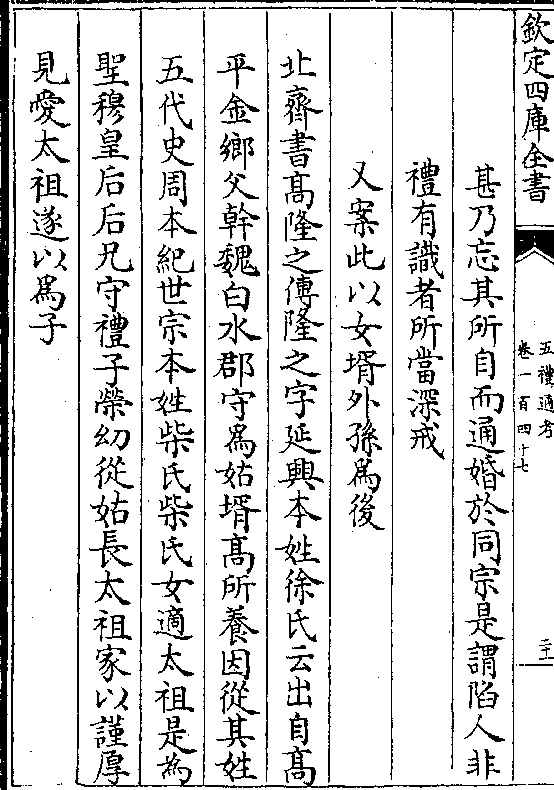 欽定四庫全書
五禮通考
卷一百四十七
甚乃忘其所自而通婚於同宗是謂陷人非
禮有識者所當深戒
又案此以女壻外孫為後
北齊書髙隆之傳隆之字延興本姓徐氏云出自髙
平金鄉父幹魏白水郡守為姑壻髙所養因從其姓
五代史周本紀世宗本姓柴氏柴氏女適太祖是為
聖穆皇后后兄守禮子榮幼從姑長太祖家以謹厚
見愛太祖遂以為子